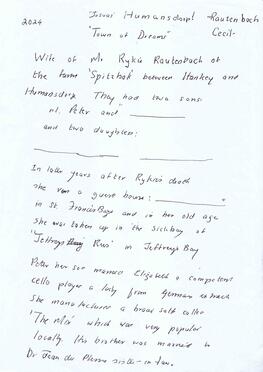 2024
Humansdorp! - Rautenbach
"Town of Dreams" Cecil-
Wife of Mr Rykie Rautenbach of
the farm 'Spitzkop' between Hankey and
Humansdorp. They had two sons:
nl. Peter and
and two daughters:
In later years after Rykie's death
she ran a guest house:
in St. Francis Bay and in her old age
she was taken up in the sickbay of
'Jeffreys Rus' in Jeffrey's Bay
Peter her son married Elizabeth a competent
cello player a lady from German extract
She manufactures a braai salt called
which was very popular
locally. His brother was married to
Dr Jean du sister-in-law.